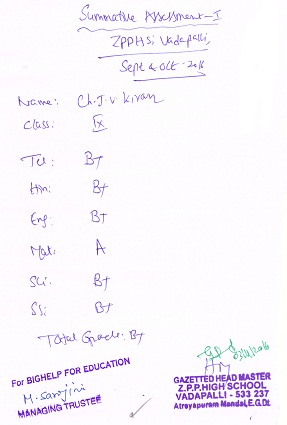 Summative Assessment-I
ZPPHSi Vadapalli,
Sept & Oct - 2016
Name: Ch.J.V.Kiran
Class: IX
Tel: B+
Hin: B+
Eng: B+
Mat: A
Sci: B+
SS: B+
Total Grade: B+
For BIGHELP FOR EDUCATION
M. Sarojini
MANAGING TRUSTEE
HM
GAZETTED HEAD MASTER
Z.P.P.HIGH SCHOOL
VADAPALLI - 533 237
Atreyapuram Mandal, E.G.Dt.